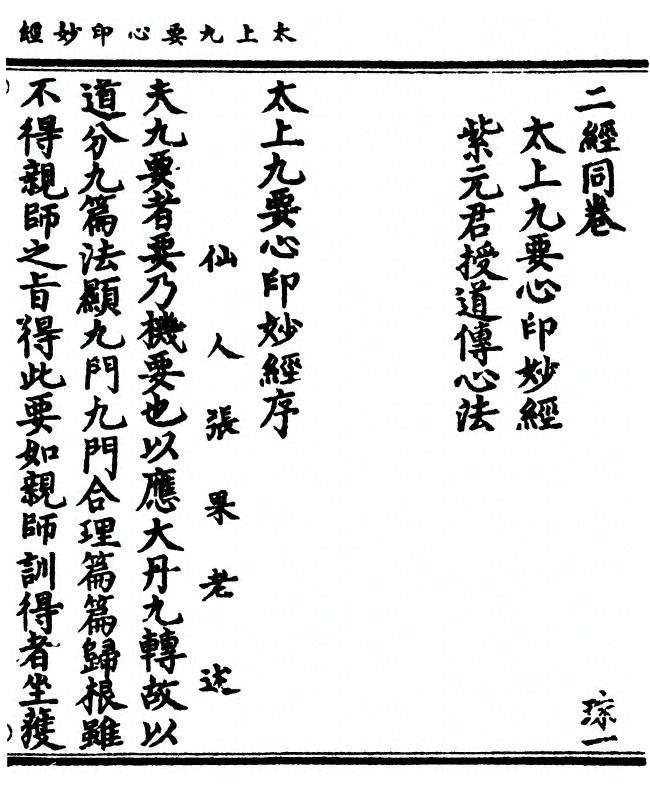 太上九要心印妙經
二經同卷
琼一
太上九要心印妙經
紫元君授道傳心法
太上九要心印妙經序
仙人張果老述
夫九要者要乃機要也以應大丹九轉故以
道分九篇法顯九門九門合理篇篇歸根雖
不得親師之旨得此要如親師訓得者坐獲